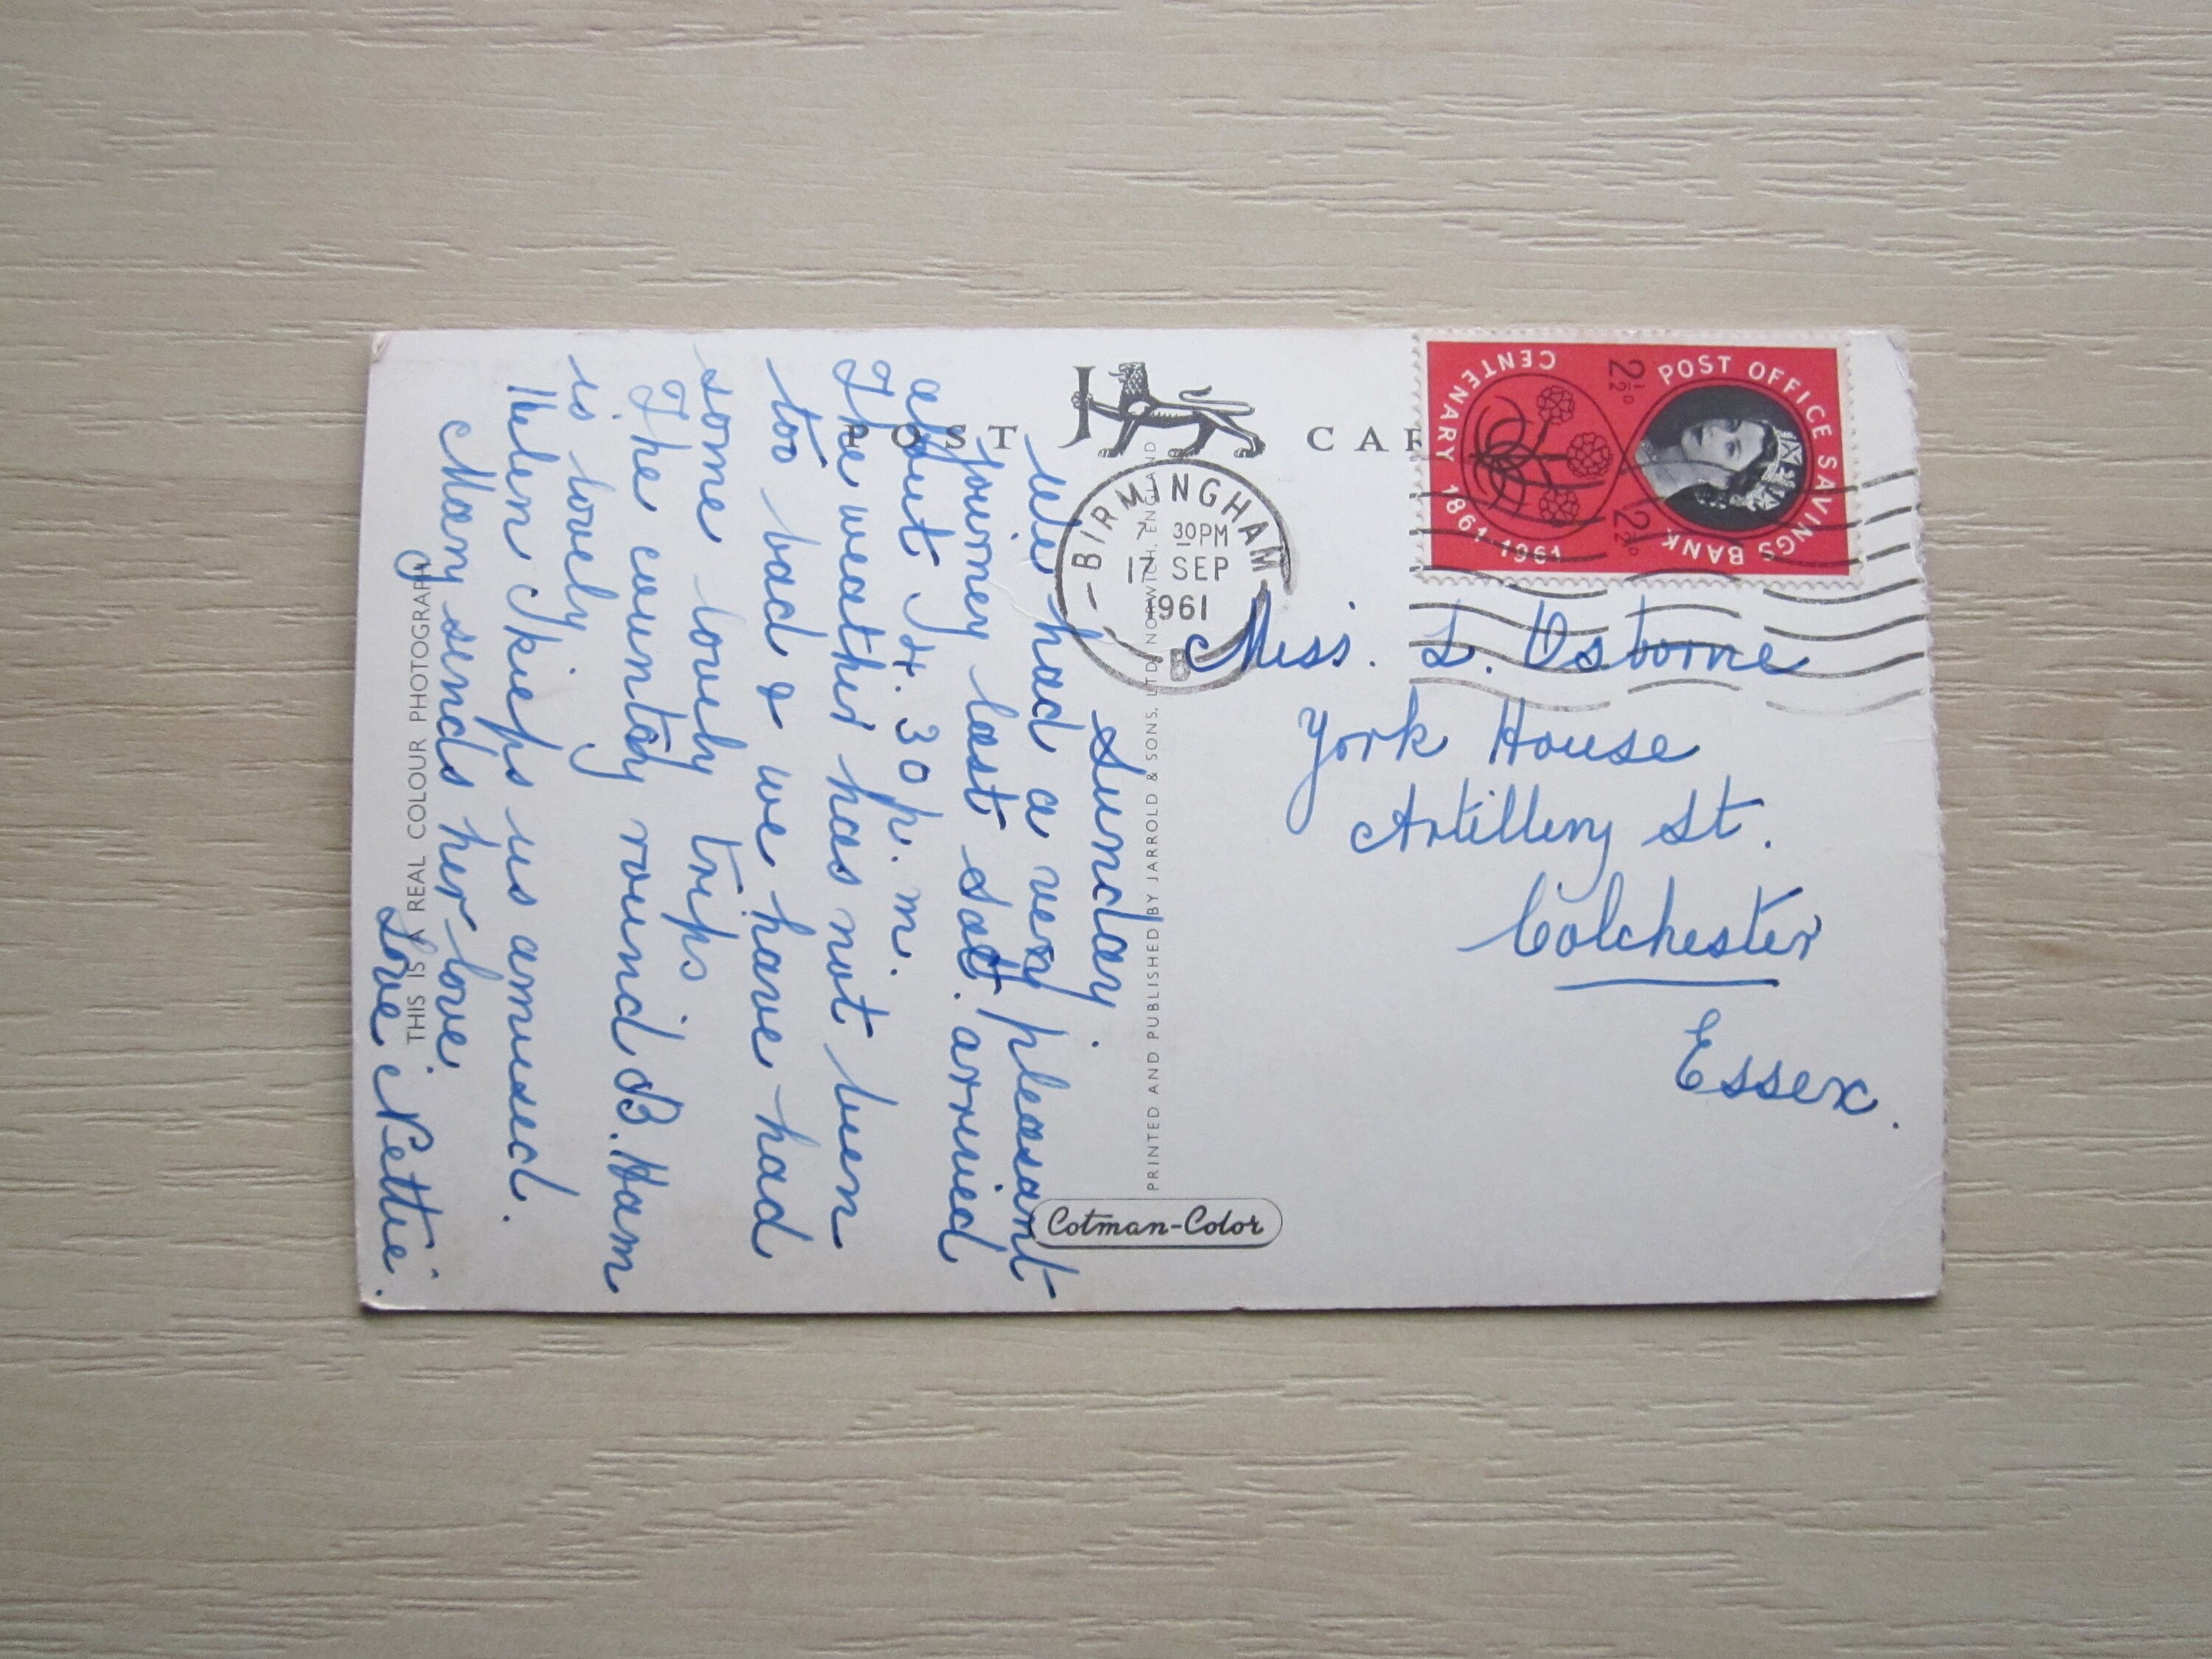 POST CAR
Sunday.
We had a very pleasant
journey last Sat. arrived
about 4.30 p.m.
The weather has not been
too bad & we have had
some lovely trips
The country round B.Ham
is lovely
Helen keeps us amused.
Mary sends her love.
Love Nettie.
THIS IS A REAL COLOUR PHOTOGRAPH
PRINTED AND PUBLISHED BY JARROLD & SONS, LTD, NORWICH, ENGLAND
Cotman-Color
BIRMINGHAM
7 30PM
17 SEP
1961
B
POST OFFICE SAVINGS BANK
2½D
2½D
CENTENARY 1861-1961
Miss. L. Osborne
York House
Artillery St.
Colchester
Essex.